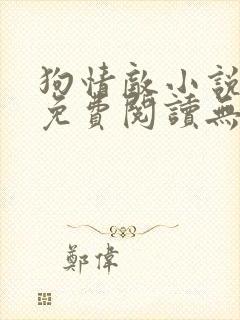 狗情敵小說
免費閱讀無
鄭偉